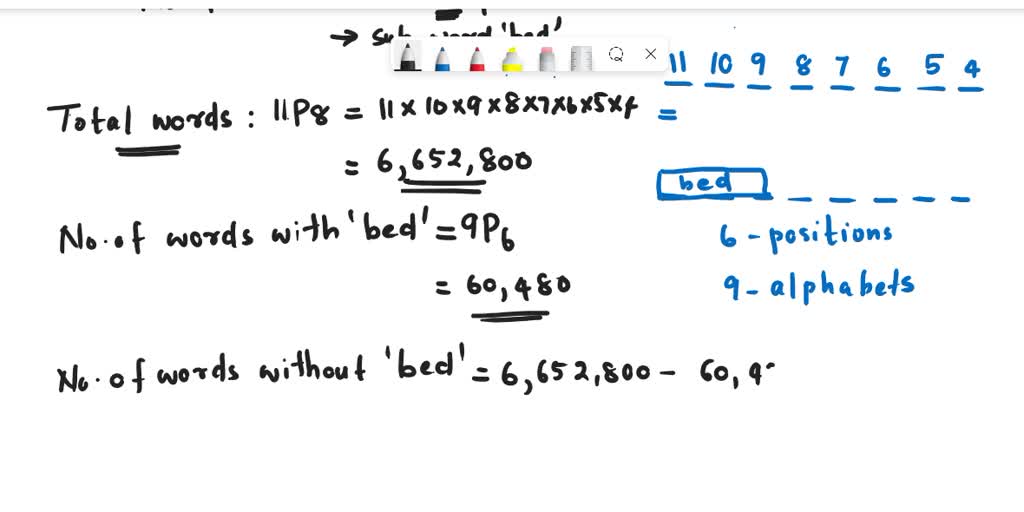 → sub word 'bed'
11 10 9 8 7 6 5 4
Total words : 11P8 = 11×10×9×8×7×6×5×4 =
= 6,652,800
bed
No. of words with 'bed' = 9P6
6 - positions
= 60,480
9 - alphabets
No. of words without 'bed' = 6,652,800 - 60,4